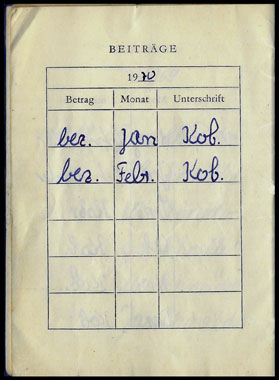 BEITRÄGE
1970
Betrag Monat Unterschrift
bez. Jan Kob.
bez. Febr. Kob.